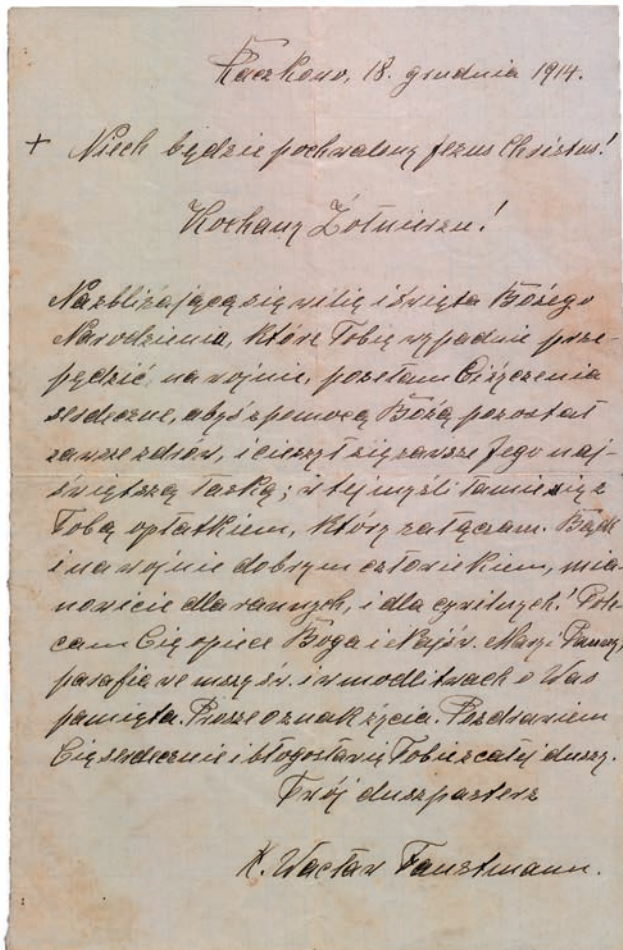 Kaczkowo, 18. grudnia 1914.
+ Niech będzie pochwalony Jezus Christus!
Kochany Żołnierzu!
Na zbliżającą się wilię i święta Bożego
Narodzenia, które Tobie wypadnie prze-
pędzić na wojnie, posełam Ci życzenia
serdeczne, abyś z pomocą Bożą pozostał
zawsze zdrów, i cieszył się zawsze Jego naj-
świętszą łaską; w tej myśli łamię się z
Tobą opłatkiem, który załączam. Bądź
i na wojnie dobrym człowiekiem, mia-
nowicie dla rannych, i dla cywilnych! Pole-
cam Cię opiece Boga i Najśw. Maryi Panny,
parafia we mszy św. i w modlitwach o Was
pamięta. Proszę o znak życia. Pozdrawiam
Cię serdecznie i błogosławię Tobie z całej duszy.
Twój duszpasterz
X. Wacław Faustmann.